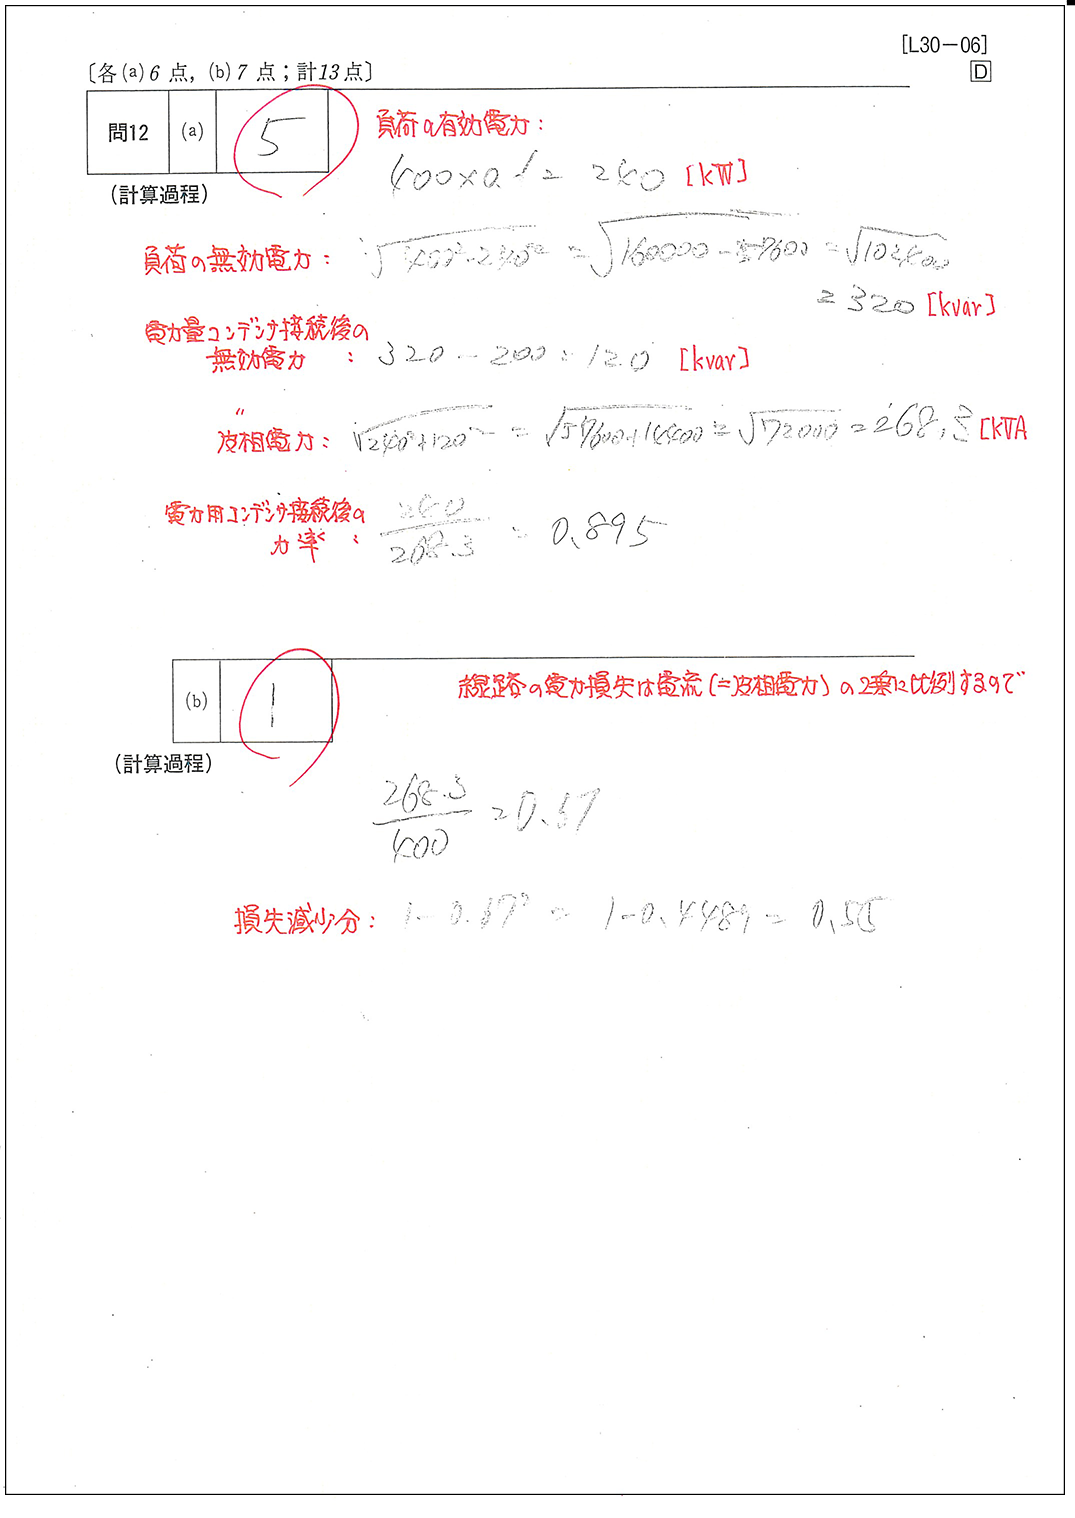 [L30-06]
D
〔各(a)6点，(b)7点；計13点〕
問12 (a) 5
負荷の有効電力：
400×0.6= 240 [kW]
(計算過程)
負荷の無効電力： √400²-240² = √160000-57600 = √102400
= 320 [kvar]
電力量コンデンサ接続後の
無効電力 ： 320-200=120 [kvar]
〃
皮相電力： √240²+120² = √57600+14400 = √72000 = 268.3 [kVA
電力用コンデンサ接続後の
力率： 240/268.3 = 0.895
(b) 1
線路の電力損失は電流(=皮相電力)の2乗に比例するので
(計算過程)
268.3/400 = 0.67
損失減少分： 1-0.67² = 1-0.4489 = 0.55